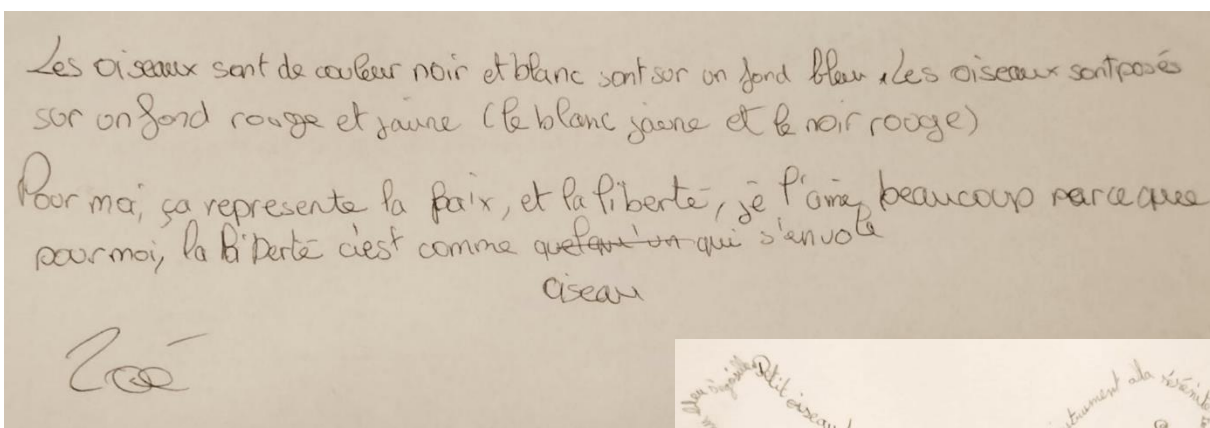 Les oiseaux sont de couleur noir et blanc sont sur un fond bleu. Les oiseaux sont posés
sur un fond rouge et jaune (le blanc jaune et le noir rouge)
Pour moi, ça représente la paix, et la liberté, je l'aime beaucoup parce que
pour moi, la liberté c'est comme quelqu'un qui s'envole
oiseau
Zoé
Petit oiseau
à la sérénité